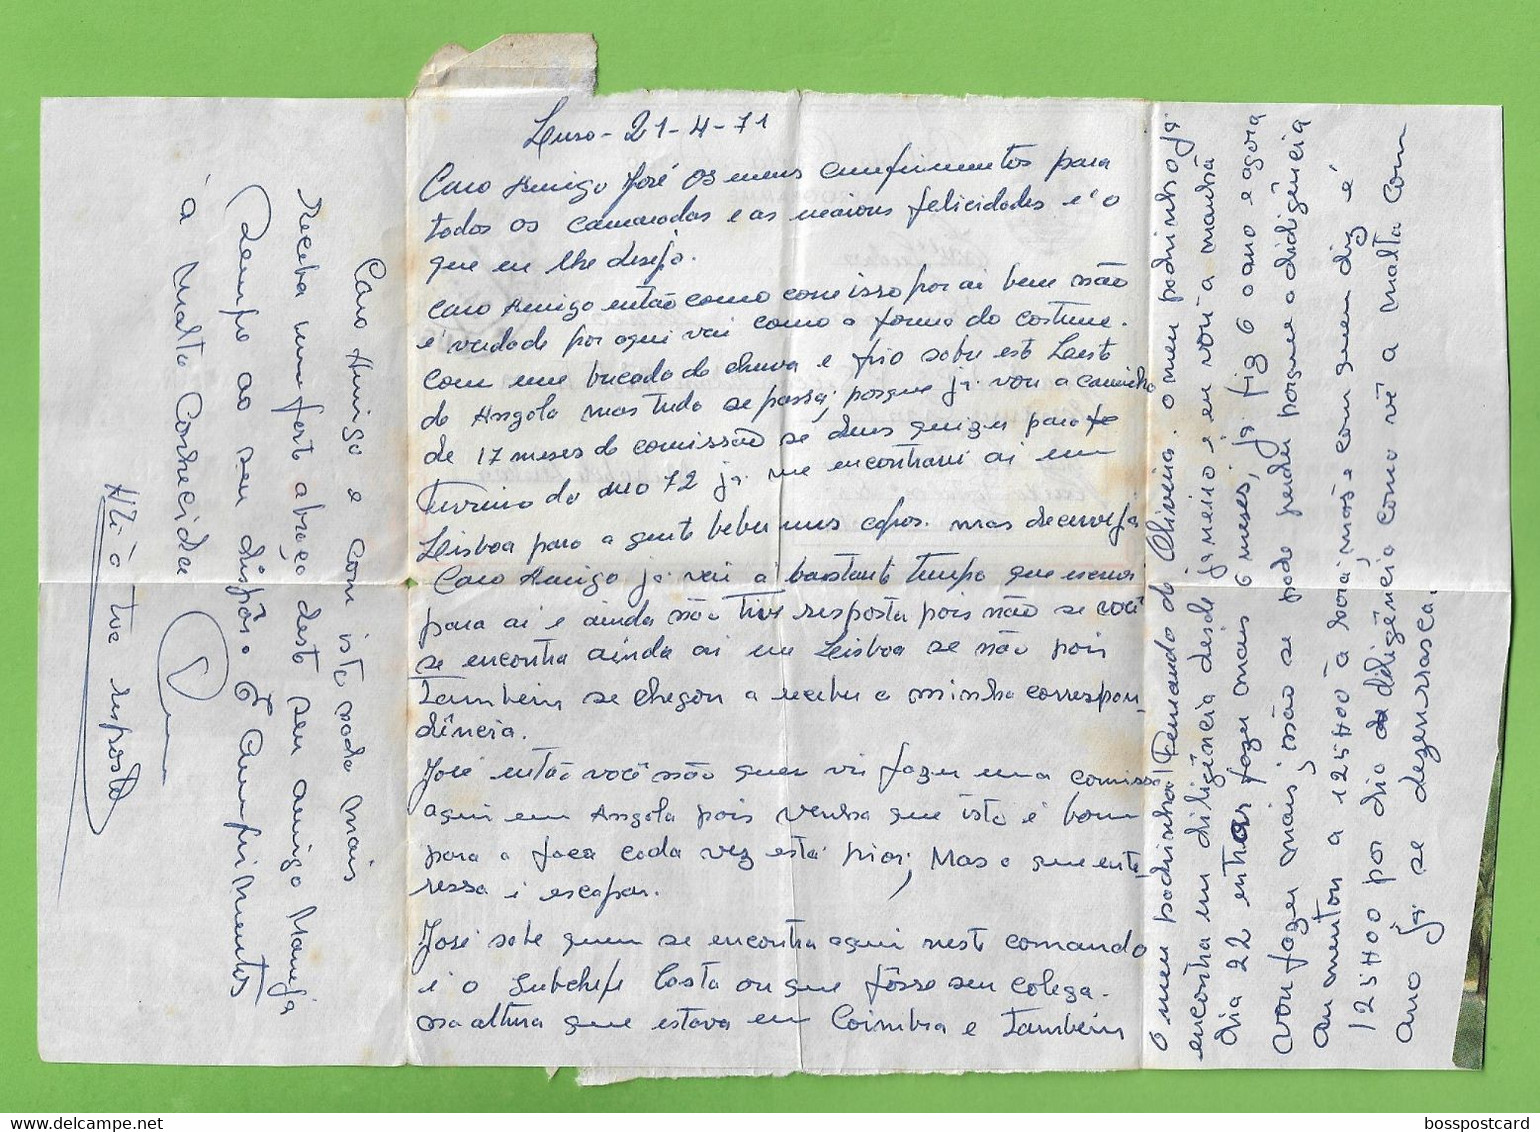 Luso - 21-4-71
Caro Amigo José os meus cumprimentos para
todos os camaradas e as maiores felicidades é o
que eu lhe desejo.
Caro Amigo então como come isso por ai bem não
é verdade por aqui vai como a forma do costume.
com um bucado de chuva e frio sobre este Leste
de Angola mas tudo se passa, porque já vou a caminho
de 17 meses de comissão se deus quizer para
Turino do ano 72 já me encontrari ai em
Leisboa para a gente beber uns copos. mas de cerveja
Caro Amigo já vai á bastante tempo que escrevi
para ai e ainda não tive resposta pois não se você
se encontra ainda ai em Leisboa se não pois
Tambeim se chegou a receber a minha correspon-
dência.
José então você não quer vir fazer uma comissã
aqui em Angola pois venha que isto é bom
para a faca cada vez está pior, Mas o que ente-
ressa é escapar.
José sabe quem se encontra aqui neste comando
é o Subchefe Costa ou que fôsse seu colega.
na altura que estava em Coimbra e tambeim
O meu padrinho! Fernando de Oliveira. o meu padrinho já
encontra em diligência desde janeiro e eu vou a manhã
dia 22 entrar fazer mais 6 meses, já fiz 6 o ano e agora
vou fazer mais, não se pode perder porque a diligência
aumentou a 125$00 á sorai, mas e com quem diz é
125$00 por dia de diligência como vê a malta com
ano já se dezenrrasca.
Caro Amigo e com isto nada mais
Receba um forte abraço deste seu amigo Maneja
Sempre ao seu dispôr e Cumprimentos
á Malta Conhecida
Até á tua resposta
bosspostcard.com